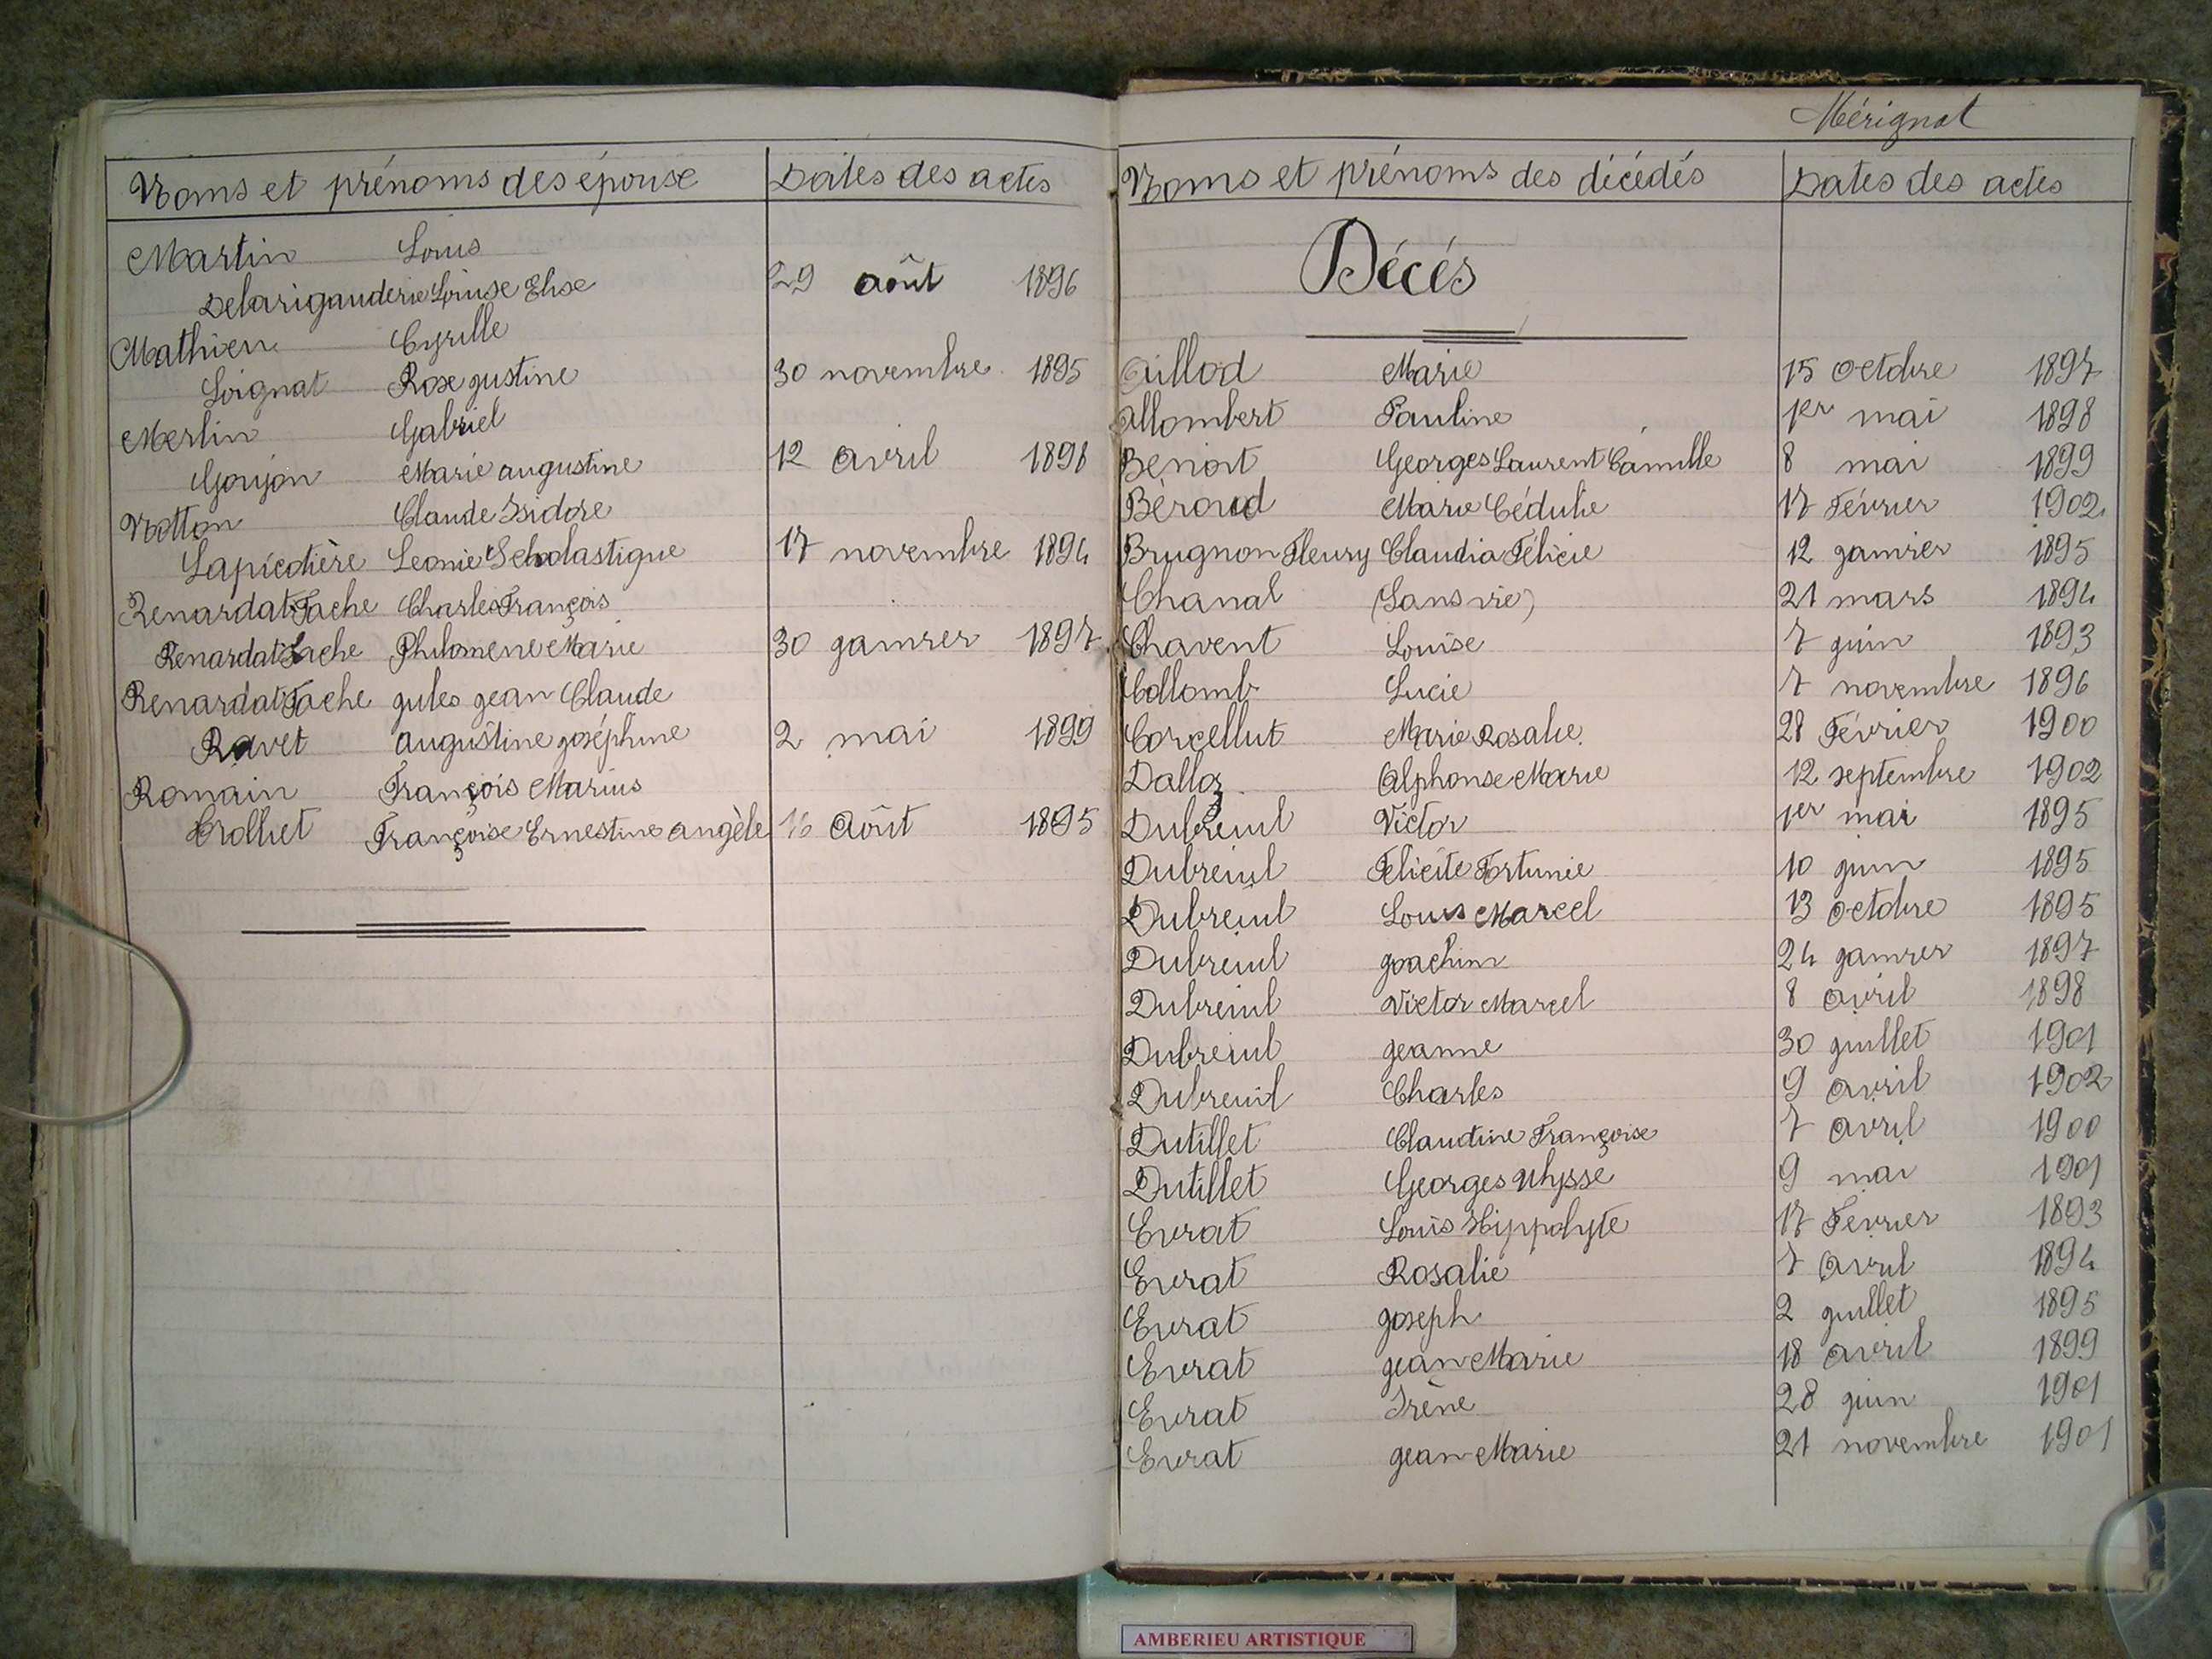 Noms et prénoms des épouse Dates des actes
Martin Louis
Delarigauderie Louise Elise 29 août 1896
Mathieu Cyrille
Loignat Rose gustine 30 novembre 1895
Merlin Gabriel
Goujon Marie augustine 12 avril 1898
Notton Claude Isidore
Lapiedière Leonie Scholastique 17 novembre 1894
Renardat Fache Charles François
Renardat Fache Philomène Marie 30 janvier 1897
Renardat Fache jules jean Claude
Ravet augustine joséphine 2 mai 1899
Romain François Marius
Crolliet Françoise Ernestine angèle 16 Août 1895
Mérignat
Noms et prénoms des décédés Dates des actes
Décés
Aillod Marie 15 Octobre 1897
Allombert Pauline 1er mai 1898
Benoit Georges Laurent Camille 8 mai 1899
Béroud Marie Cédulie 17 Février 1902
Brugnon Fleury Claudia Félicie 12 janvier 1895
Chanal (Sans vie) 21 mars 1894
Chavent Louise 7 juin 1893
Collomb Lucie 7 novembre 1896
Corcellut Marie Rosalie 28 Février 1900
Dalloz Alphonse Marie 12 septembre 1902
Dubreuil Victor 1er mai 1895
Dubreuil Félicite Fortunie 10 juin 1895
Dubreuil Louis Marcel 13 Octobre 1895
Dubreuil joachim 24 janvier 1897
Dubreuil Victor Marcel 8 avril 1898
Dubreuil jeanne 30 juillet 1901
Dubreuil Charles 9 avril 1902
Dutillet Claudine Françoise 7 avril 1900
Dutillet Georges Ulysse 9 mai 1901
Evrat Louis Hippolyte 17 Fevrier 1893
Evrat Rosalie 7 avril 1894
Evrat joseph 2 juillet 1895
Evrat jean Marie 18 avril 1899
Evrat Irène 28 juin 1901
Evrat jean Marie 21 novembre 1901
AMBERIEU ARTISTIQUE